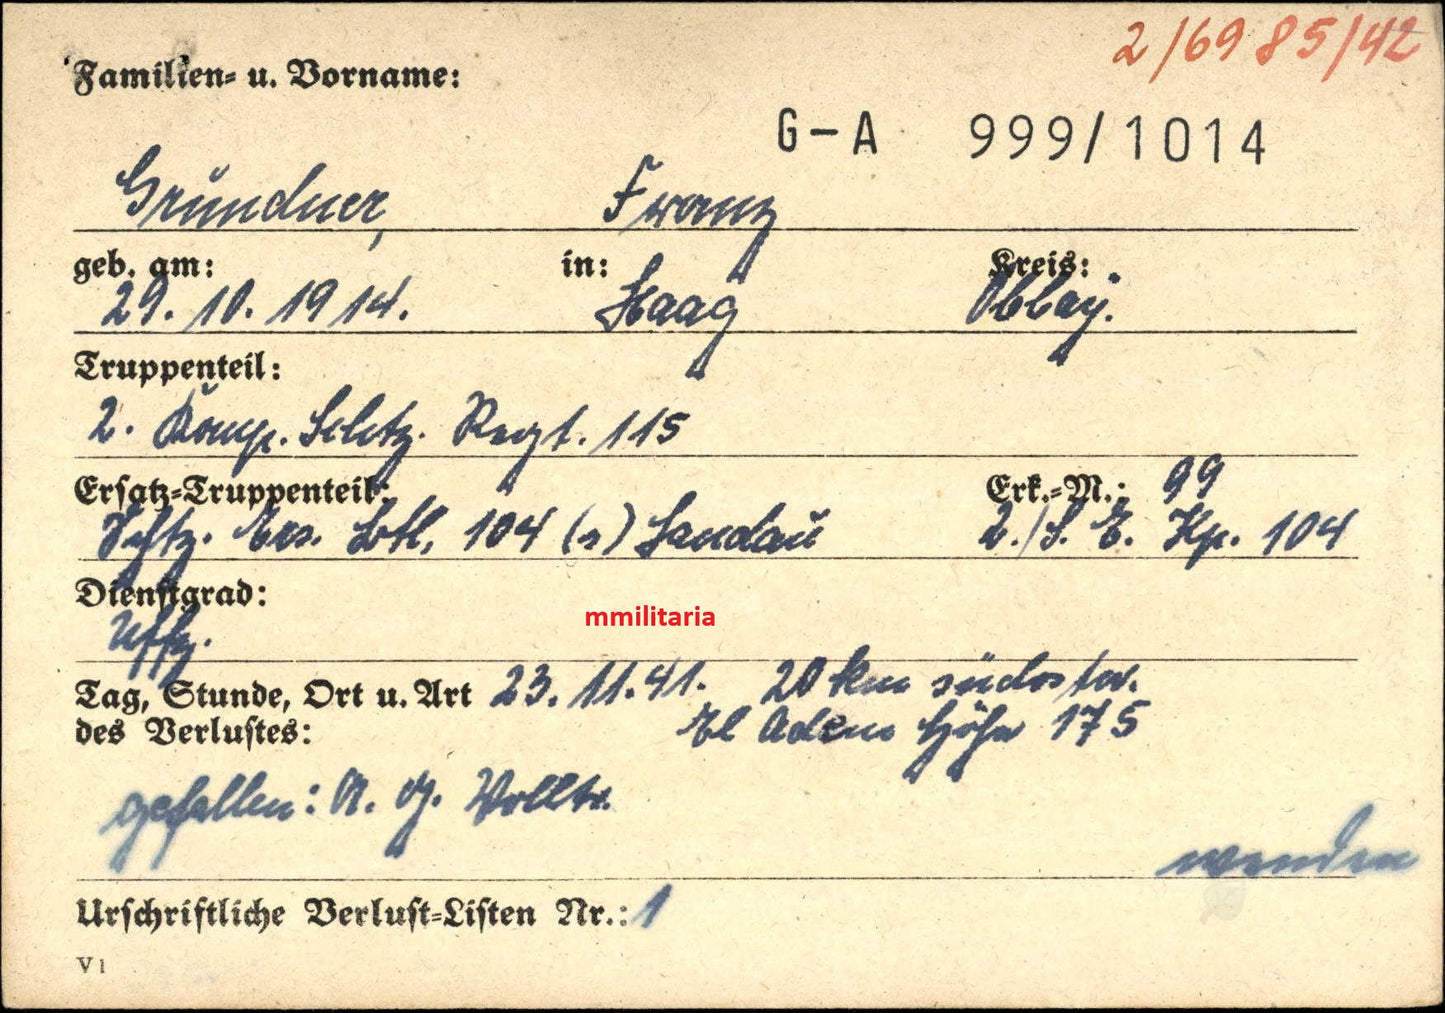 2/6985/42
Familien- u. Vorname:
G-A 999/1014
Gründner, Franz
geb. am: in: Kreis:
29. 10. 1914. Haag Obbay.
Truppenteil:
2. Komp. Schtz. Regt. 115
Ersatz-Truppenteil: Erk.-M.: 99
Schtz. Ers. Btl. 104 (s) Landau 2./S. E. Kp. 104
Dienstgrad:
Uffz.
mmilitaria
Tag, Stunde, Ort u. Art 23. 11. 41. 20 km südostw.
des Verlustes: El Adem Höhe 175
gefallen: A. G. Volltr.
wenden
Urschriftliche Verlust-Listen Nr.: 1
V 1